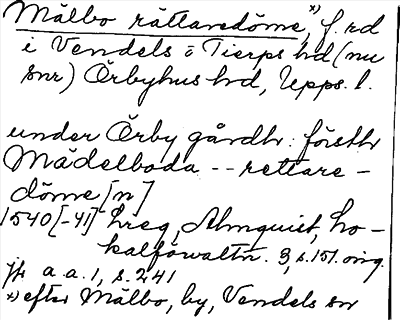 Målbo rättaredöme,*) f. rd
i Vendels o Tierps hd (nu
snr) Örbyhus hd, Upps. l.
under Örby gårdh: församl
Mädelboda -- rettare-
döme [n]
1540[-41] hreg, Almquist, Lo-
kalförvaltn. 3, s. 151. omg.
jfr a.a. 1, s. 241
*) efter Målbo, by, Vendels sn